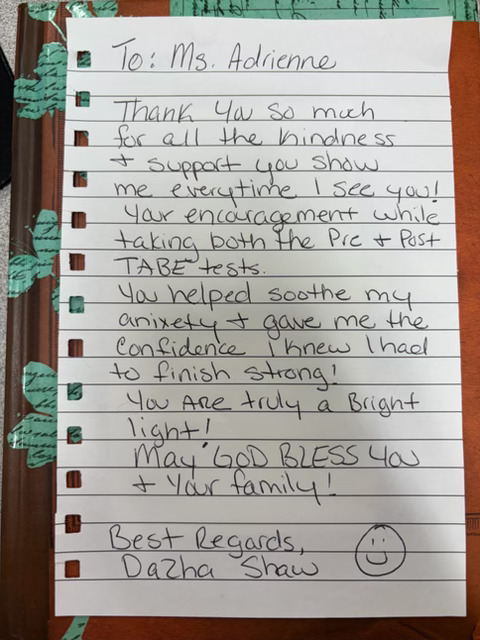 To: Ms. Adrienne
Thank You so much
for all the kindness
+ support you show
me everytime I see you!
Your encouragement while
taking both the Pre + Post
TABE tests.
You helped soothe my
anixety + gave me the
Confidence I knew I had
to finish strong!
You ARE truly a Bright
light!
May GOD BLESS YOU
+ Your family!
Best Regards,
Dazha Shaw